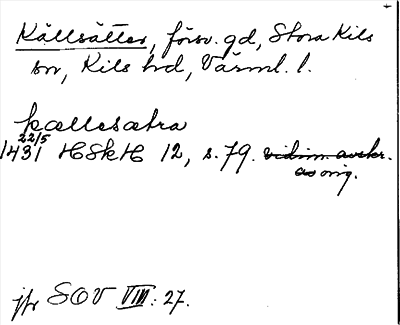 Källsätter, försv. gd, Stora Kils
sn, Kils hd, Värml. l.
kællesætra
22/5
1431 HSkH 12, s. 79. vidim. avskr.
av orig.
jfr SOV VIII: 27.